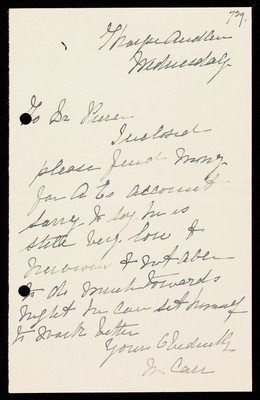 729.
Thorpe Audlin
Wednesday
To Dr
Inclosed
please find money
for account
sorry to say he is
still very low &
nervous & not able
to do much towards
night he can set himself
to work better
Yours